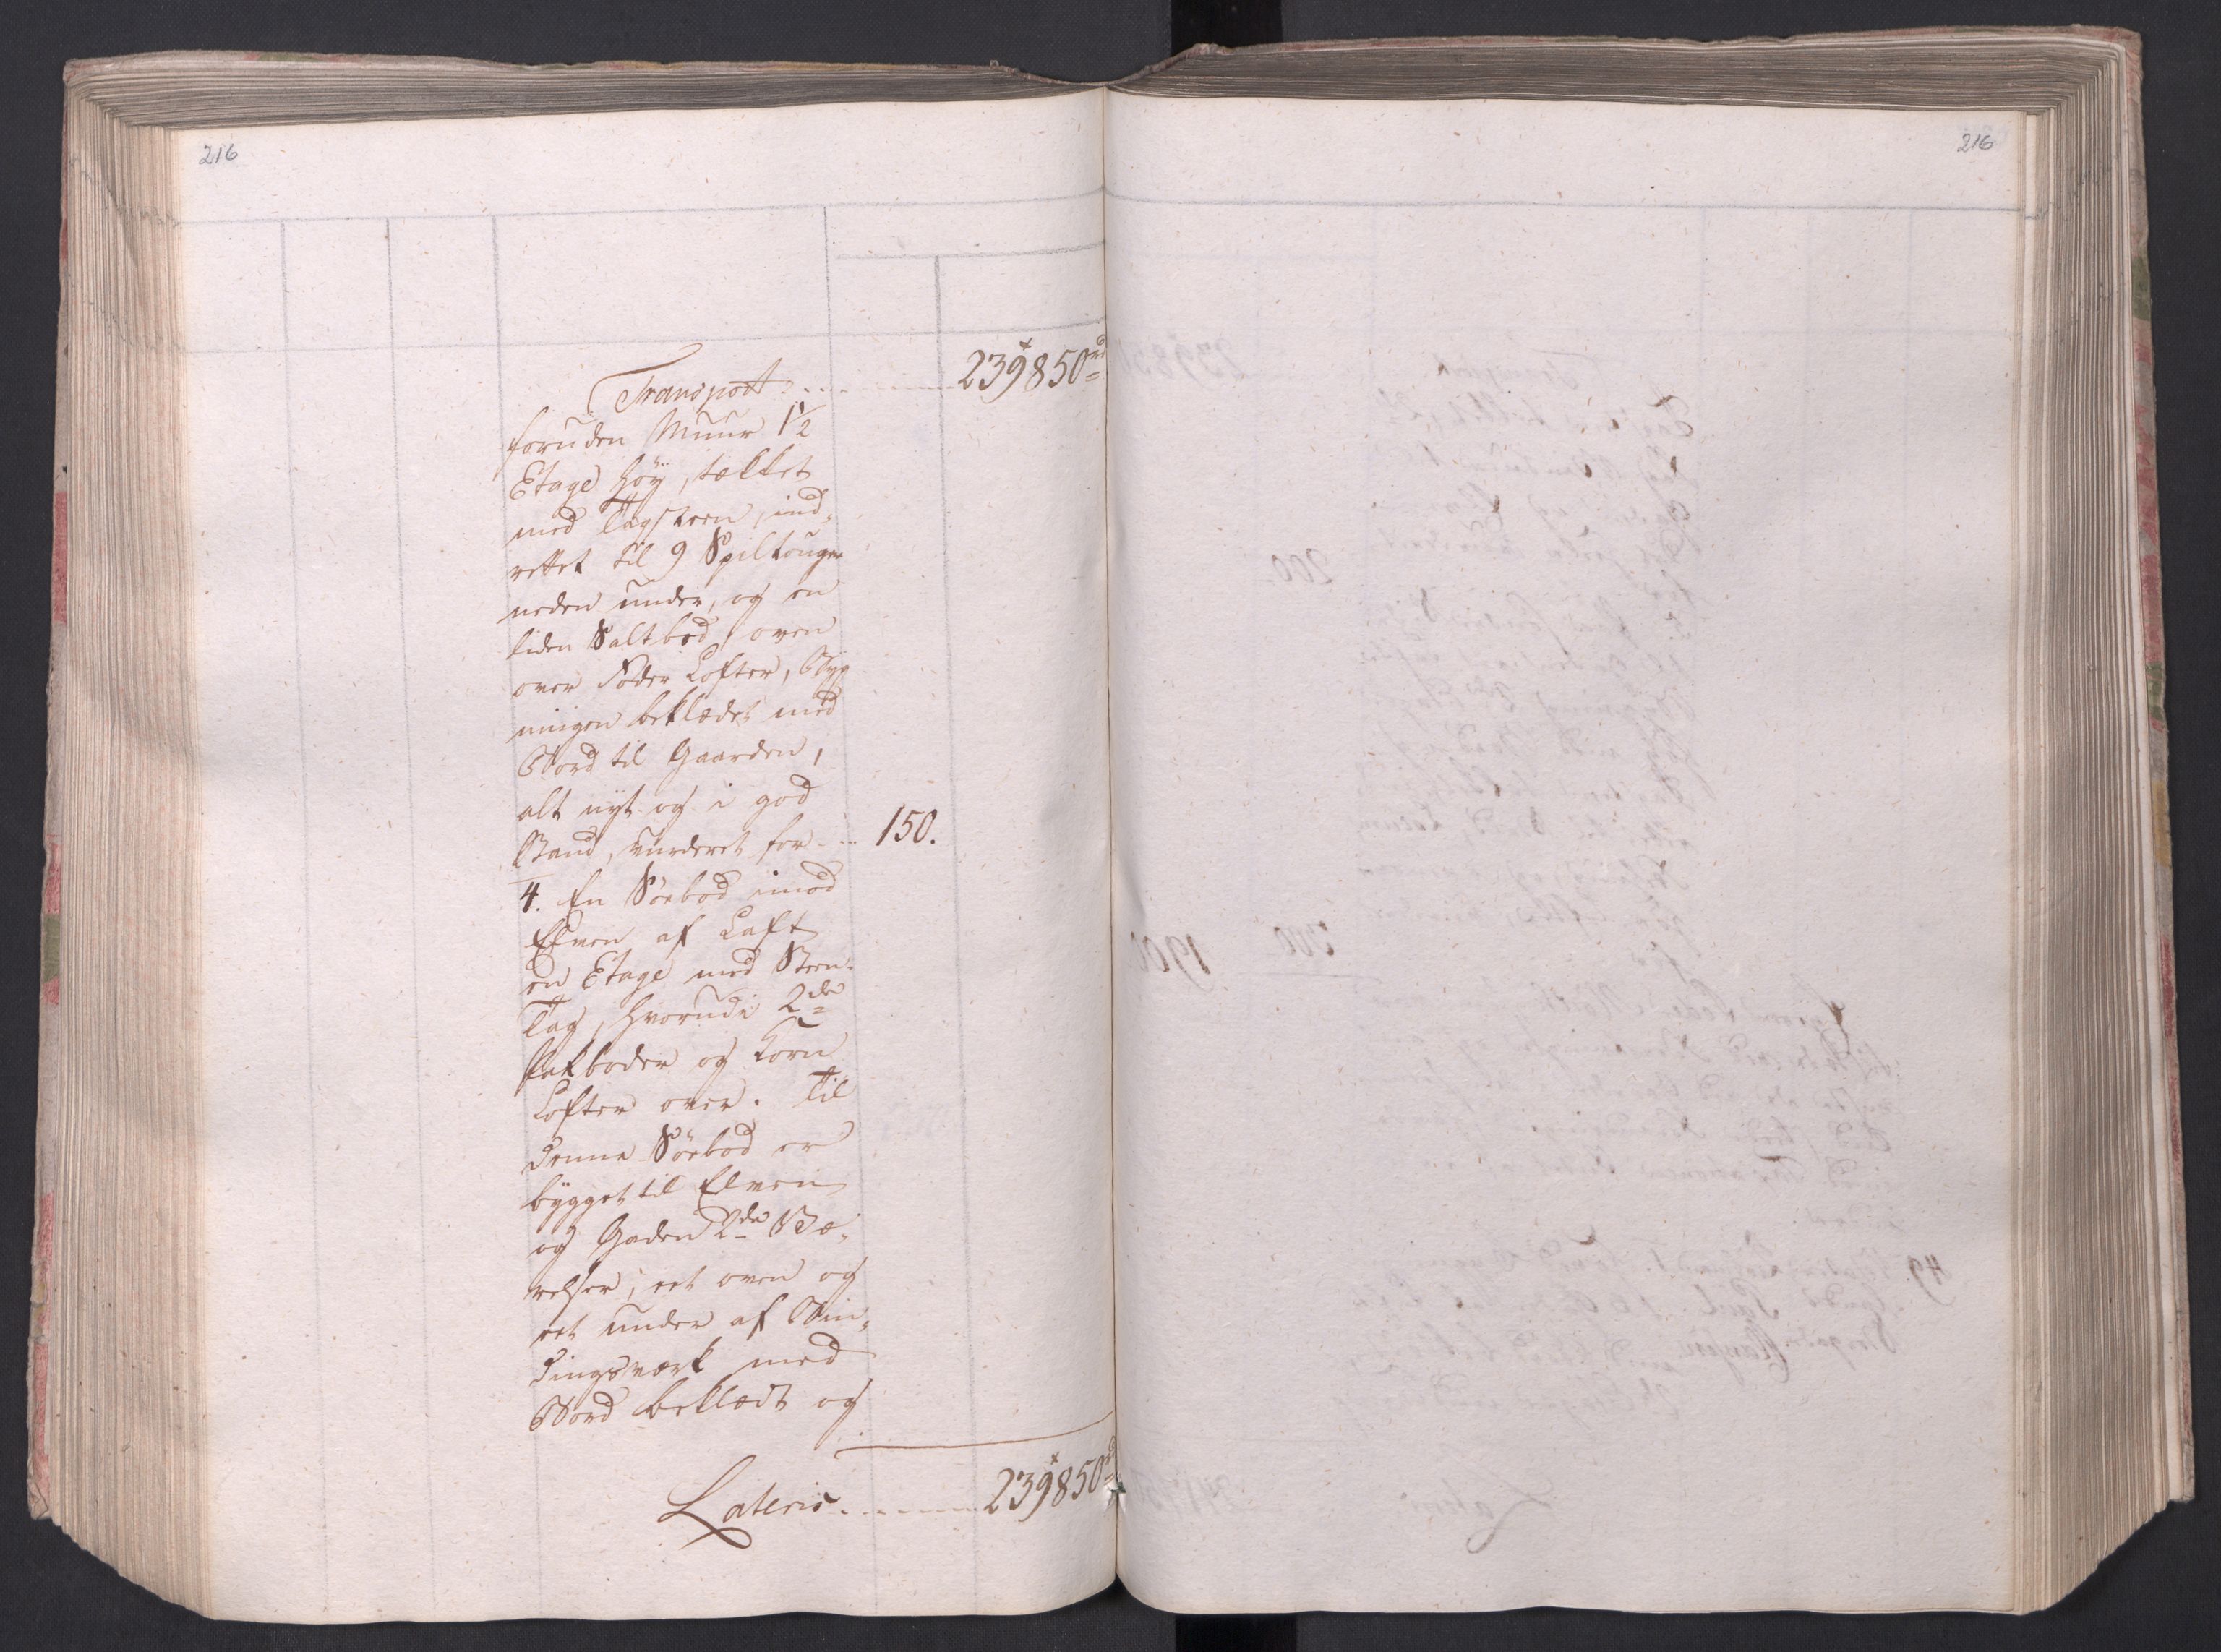 216
216
Transport . . . 239850 rd
foruden Muur 1½
Etage høy, tækket
med Tagsteen, ind-
rettet til 9 Spiltouger
neden under, og en
liden Saltbod, oven
over Foder Lofter, Byg
ningen beklædet med
Bord til Gaarden,
alt nyt og i god
Stand, vurderet for . . . 150.
4. En Søebod imod
Elven af Laft
en Etage med Steen-
Tag, hvorudi 2de
Pakboder og Korn
Lofter over. Til
denne Søebod er
bygget til Elven
og Gaden 2de Væ-
relser, eet oven og
eet under af Bin-
dingsværk med
Bord beklædt og
Lateris . . . . . 239850 rd